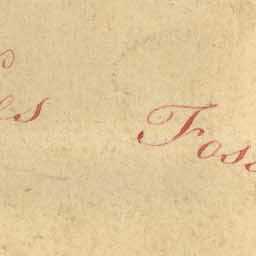 es Foss